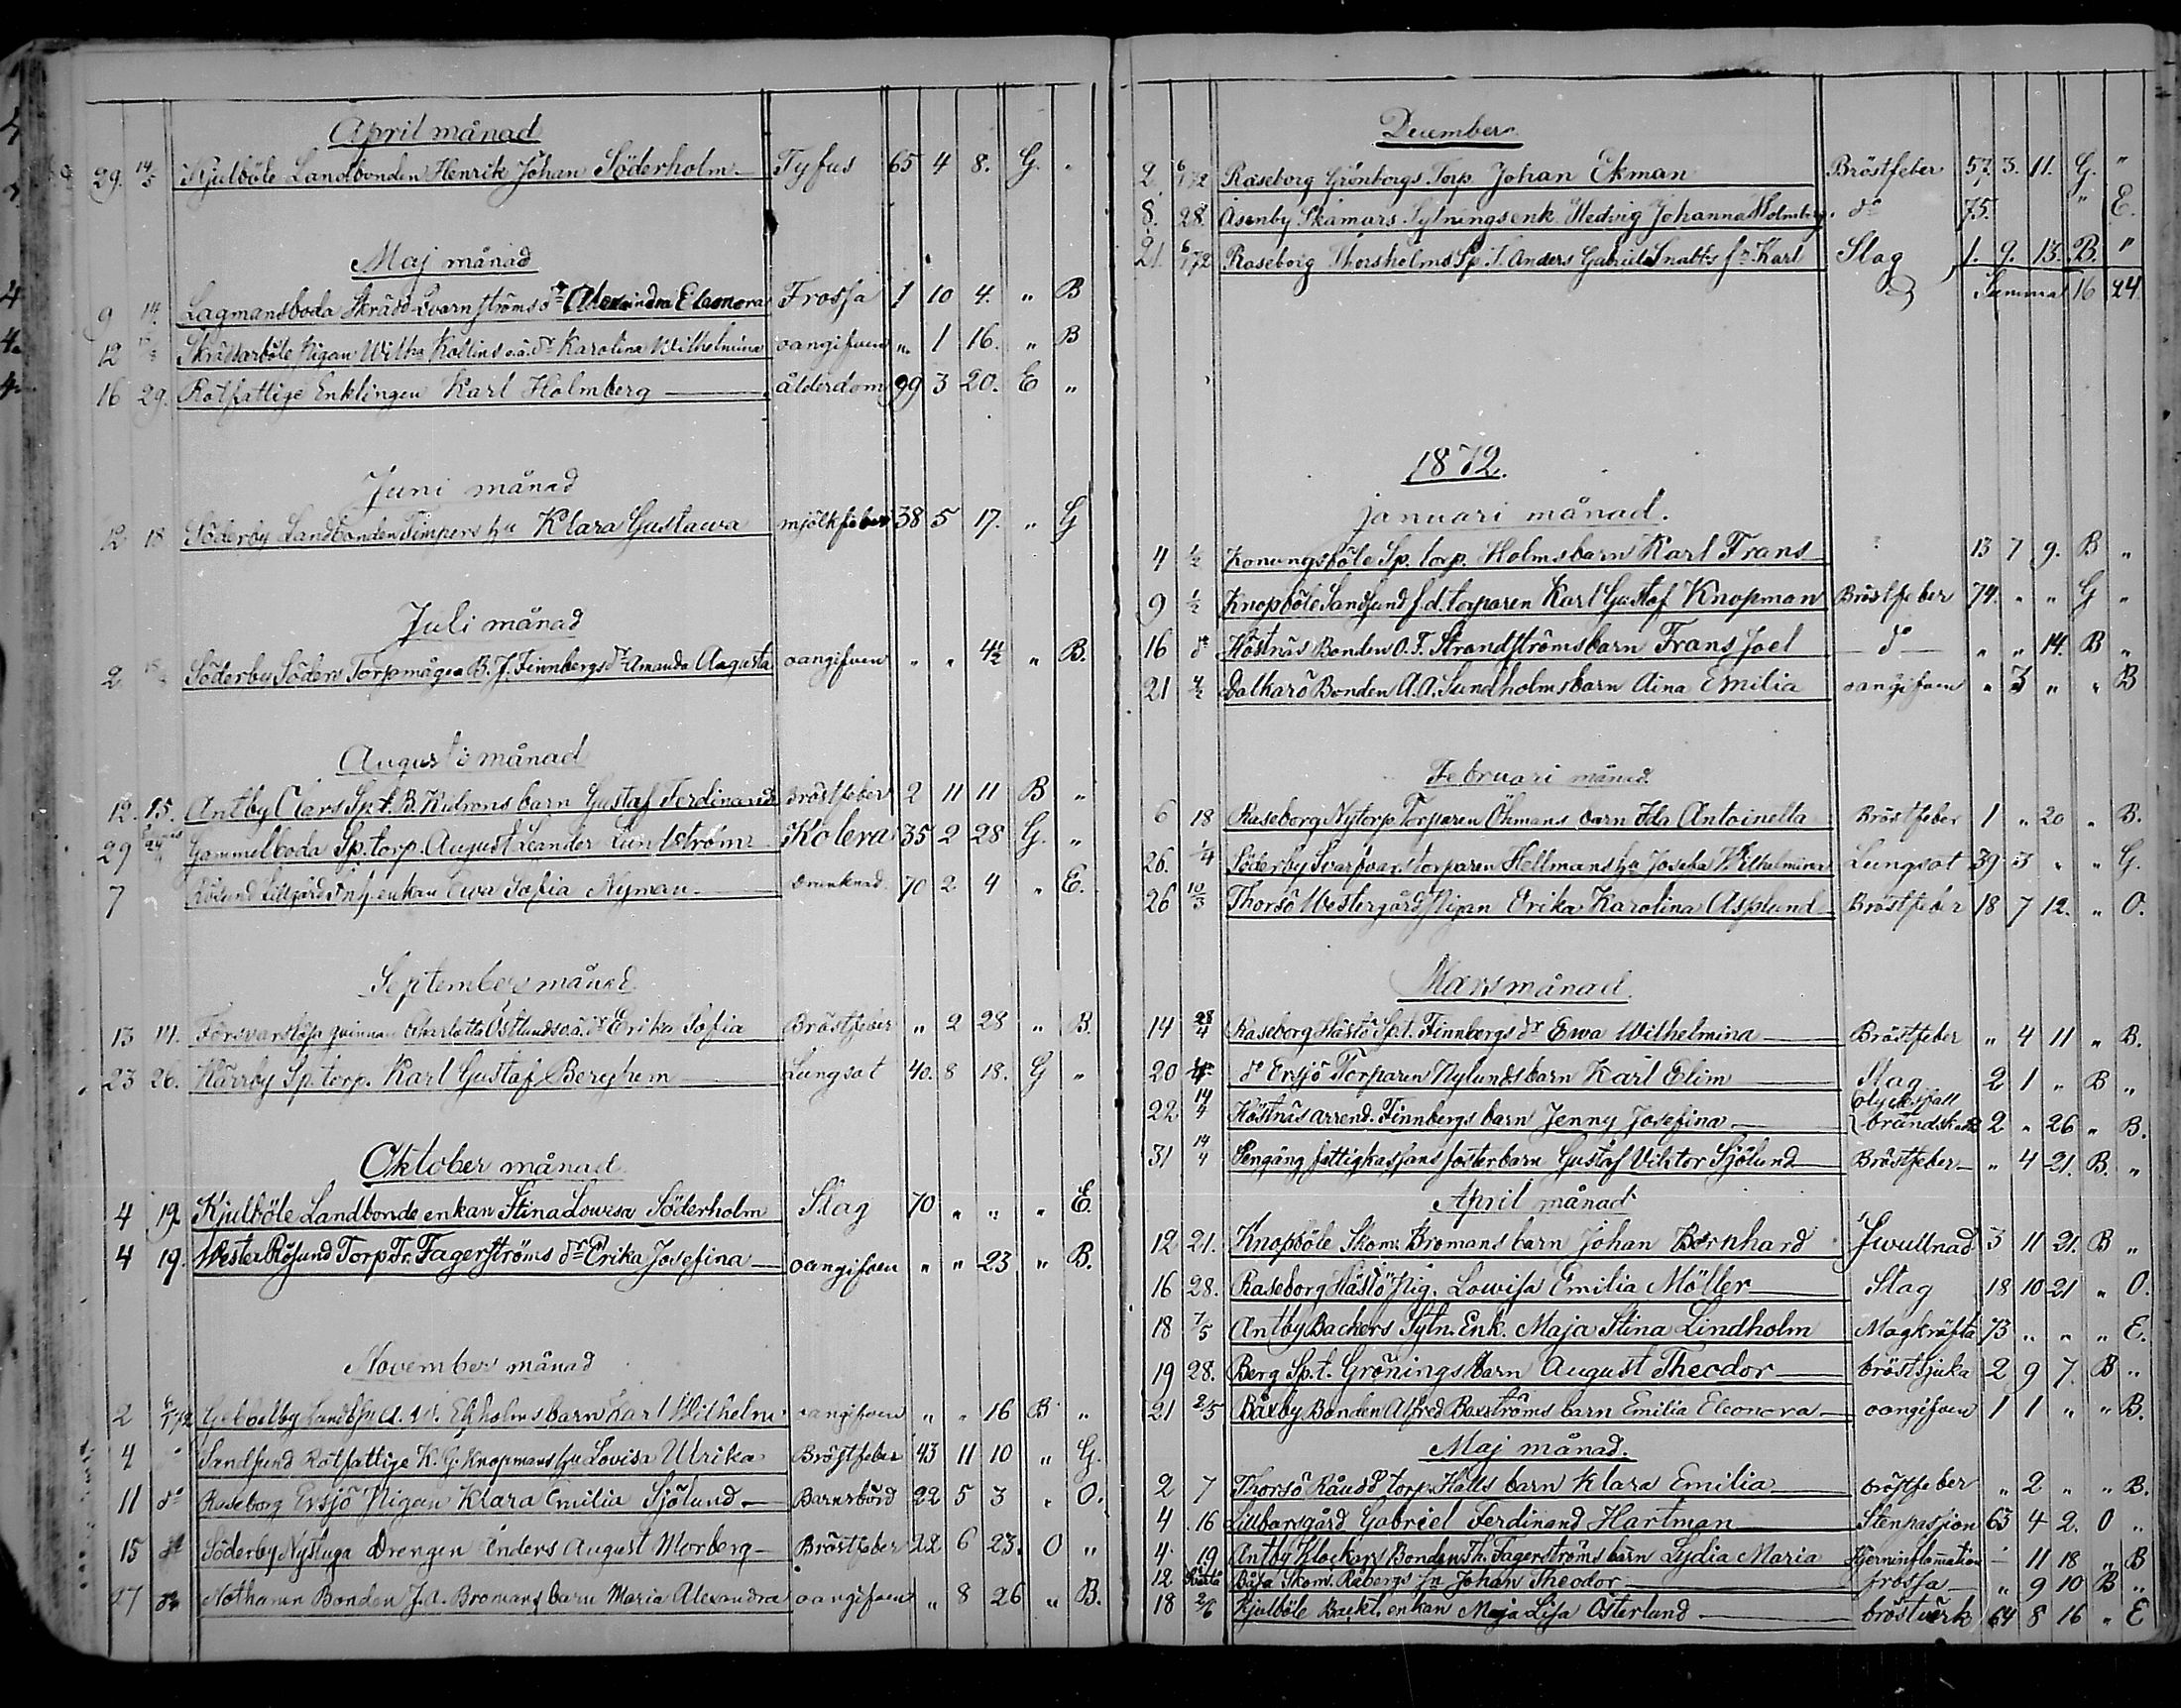 April månad
29. 14/5 Kjulböle Landbonden Henrik Johan Söderholm Tyfus 65 4 8. G. "
Maj månad
9 14. Lagmansboda Skrädd. Qvarnströms dr Alexandra Eleonora Frossa 1 10 4. " B
12 Skräddarböle Pigan Wilha Kollins o.ä. dr Karolina Wilhelmina oangifven " 1 16. " B
16 29. Rotfattige Enklingen Karl Holmberg ålderdom 99 3 20. E "
Juni månad
12 18 Söderby Landbonden Timpers hu Klara Gustawa mjölkfeber 38 5 17. " G
Juli månad
2 Söderby Söders Torpmågen B. J. Finnbergs dr Amanda Augusta oangifven " " 4½ " B.
Augusti månad
12. 15. Antby Clers Sp.t. B. barn Gustaf Ferdinand Bröstfeber 2 11 11 B "
29 Gammelboda Sp. torp. August Leander Lundström Kolera 35 2 28 G. "
7 Rösund Lillgård enkan Ewa Sofia Nyman drunknad 70 2 4 " E.
September månad
13 14. Försvarslösa qvinnan Charlotta Östlunds o.ä. dr Erika Sofia Bröstfeber " 2 28 " B.
23 26. Kärrby Sp. torp. Karl Gustaf Berghem Lungsot 40. 8 18. G "
Oktober månad
4 19. Kjulböle Landbonde enkan Stina Lowisa Söderholm Slag 70 " " " E.
4 19. Wester Rösund Torp. Fr. Fagerströms dr Erika Josefina oangifven " " 23 " B.
November månad
2 6/1 72 Gebbelby Landb. A. W. Ekholms barn Karl Wilhelm oangifven " " 16 B "
4 " Sandsund Rotfattige K. G. Knopmans hu Lovisa Ulrika Bröstfeber 43 11 10 " G.
11 do Raseborg Ersjö Pigan Klara Emilia Sjölund Barnsbörd 22 5 3 " O.
15 do Söderby Nystuga Drengen Anders August Morberg Bröstfeber 22 6 23. O "
27 do Nothamn Bonden J. A. Bromans barn Maria Alexandra oangifven " 8 26 " B.
December
2. 6/1 72 Raseborg Grönborgs Torp. Johan Ekman Bröstfeber 57. 3. 11. G. "
8. 28. Åsenby Skämars Sytningsenk. Hedvig Johanna Holmberg do 75. " E.
21. 6/1 72 Raseborg Thorsholms Sp. T. Anders Gabriel Snabbs sn Karl Slag 1. 9. 13. B. "
Summa 16 24
1872.
januari månad.
4 1/2 Konungsböle Sp. torp. Holms barn Karl Frans ? 13 7 9. B "
9 1/2 Knopböle Sandsund f.d. torparen Karl Gustaf Knopman Bröstfeber 74. " " G "
16 do Höstnäs Bonden O. F. Strandströms barn Frans Joel do " " 14. B "
21 4/2 Dalkarö Bonden A. A. Sundholms barn Aina Emilia oangifven " 3 " " B
Februari månad
6 18 Raseborg Nytorp Torparen Öhmans barn Ida Antoinetta Bröstfeber 1 " 20 " B.
26. 1/4 Söderby Svarfvars torparen Hellmans hu Josefa Wilhelmina Lungsot 39 3 " " G.
26 10/3 Thorsö Westergård Pigan Erika Karolina Asplund Bröstfeber 18 7 12. " O.
Mars månad.
14 28/4 Raseborg Hästö Sp.t. Finnbergs dr Ewa Wilhelmina Bröstfeber " 4 11 " B.
20 do Ersjö Torparen Nylunds barn Karl Elim Slag 2 1 " B "
22 14/4 Höstnäs arrend. Finnbergs barn Jenny Josefina Olycksfall brändskada 2 " 26 " B.
31 14/4 Sengång fattigkassans fosterbarn Gustaf Viktor Sjölund Bröstfeber " 4 21. B. "
April månad
12 21. Knopböle Skom. Bromans barn Johan Bernhard Swullnad 3 11 21. B "
16 28. Raseborg Hästö Pig. Lowisa Emilia Möller Slag 18 10 21 " O.
18 7/5 Antby Backers Sytn. Enk. Maja Stina Lindholm Magkräfta 73 " " " E.
19 28. Berg Sp.t. Grönings barn August Theodor bröstsjuka 2 9 7. B "
21 2/5 Båxby Bonden Alfred Baxströms barn Emilia Eleonora oangifven 1 1 " " B.
Maj månad.
2 7 Thorsö Råudd torp. Halls barn Klara Emilia bröstfeber " 2 " " B.
4 16 Lillbarsgård Gabriel Ferdinand Hartman Stenpassion 63 4 2. O "
4. 19 Antby Klockars Bonden Th. Fagerströms barn Lydia Maria Hjerninflamation " 11 18 " B
12 Båsa Skom. Råbergs sn Johan Theodor frossa " 9 10 B "
18 2/6 Kjulböle Backst. enkan Maja Lisa Österlund bröstvärk 64 8 16 " E